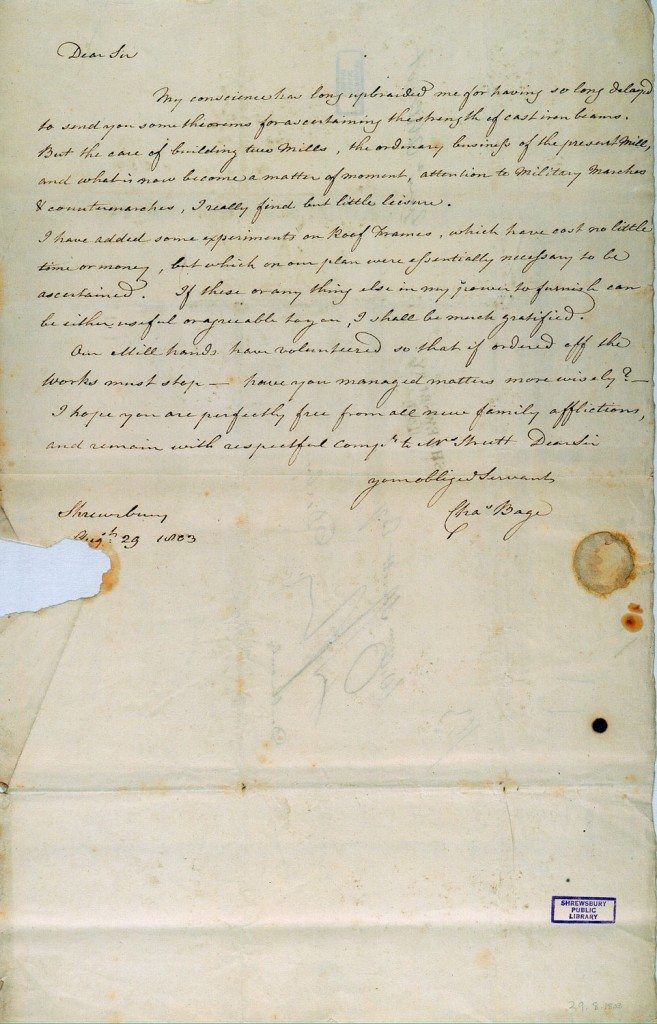 Dear Sir
My conscience has long upbraided me for having so long delayed
to send you some theorems for ascertaining the strength of cast iron beams.
But the care of building two Mills, the ordinary business of the present Mill,
and what is now become a matter of moment, attention to Military Marches
& countermarches, I really find but little leisure.
I have added some experiments on Roof Frames, which have cost no little
time or money, but which on our plan were essentially necessary to be
ascertained. If these or any thing else in my power to furnish can
be either useful or agreeable to you, I shall be much gratified.
Our Mill hands have volunteered so that if ordered off the
Works must stop — have you managed matters more wisely? —
I hope you are perfectly free from all new family afflictions,
and remain with respectful Comp.ts to Mrs Strutt Dear Sir
your obliged Servant
Chas Bage
Shrewsbury
Augst. 29 1803
SHREWSBURY
PUBLIC
LIBRARY
29. 8. 1803